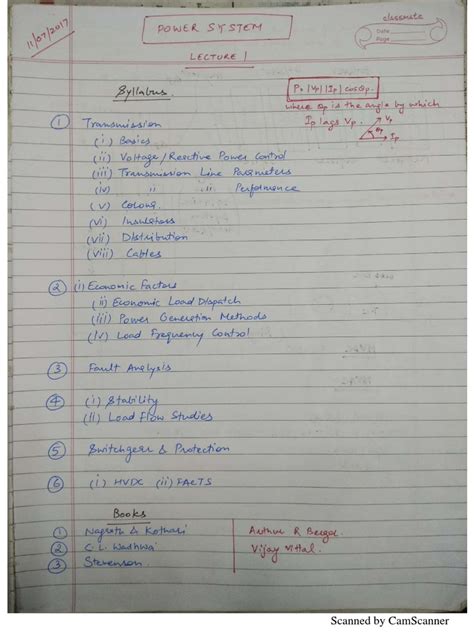 11/07/2017
POWER SYSTEM
classmate
Date
Page
LECTURE 1
Syllabus
P = |Vp| |Ip| cosθp.
where θp is the angle by which
Ip lags Vp.
Vp
θp
Ip
① Transmission
(i) Basics
(ii) Voltage/Reactive Power Control
(iii) Transmission Line Parameters
(iv) " " Performance
(v) Corona
(vi) Insulators
(vii) Distribution
(viii) Cables
② (i) Economic Factors
(ii) Economic Load Dispatch
(iii) Power Generation Methods
(iv) Load Frequency Control
③ Fault Analysis
④ (i) Stability
(ii) Load Flow Studies
⑤ Switchgear & Protection
⑥ (i) HVDC (ii) FACTS
Books
① Nagrath & Kothari Arthur R Bergen
② C.L. Wadhwa Vijay Vittal.
③ Stevenson
Scanned by CamScanner